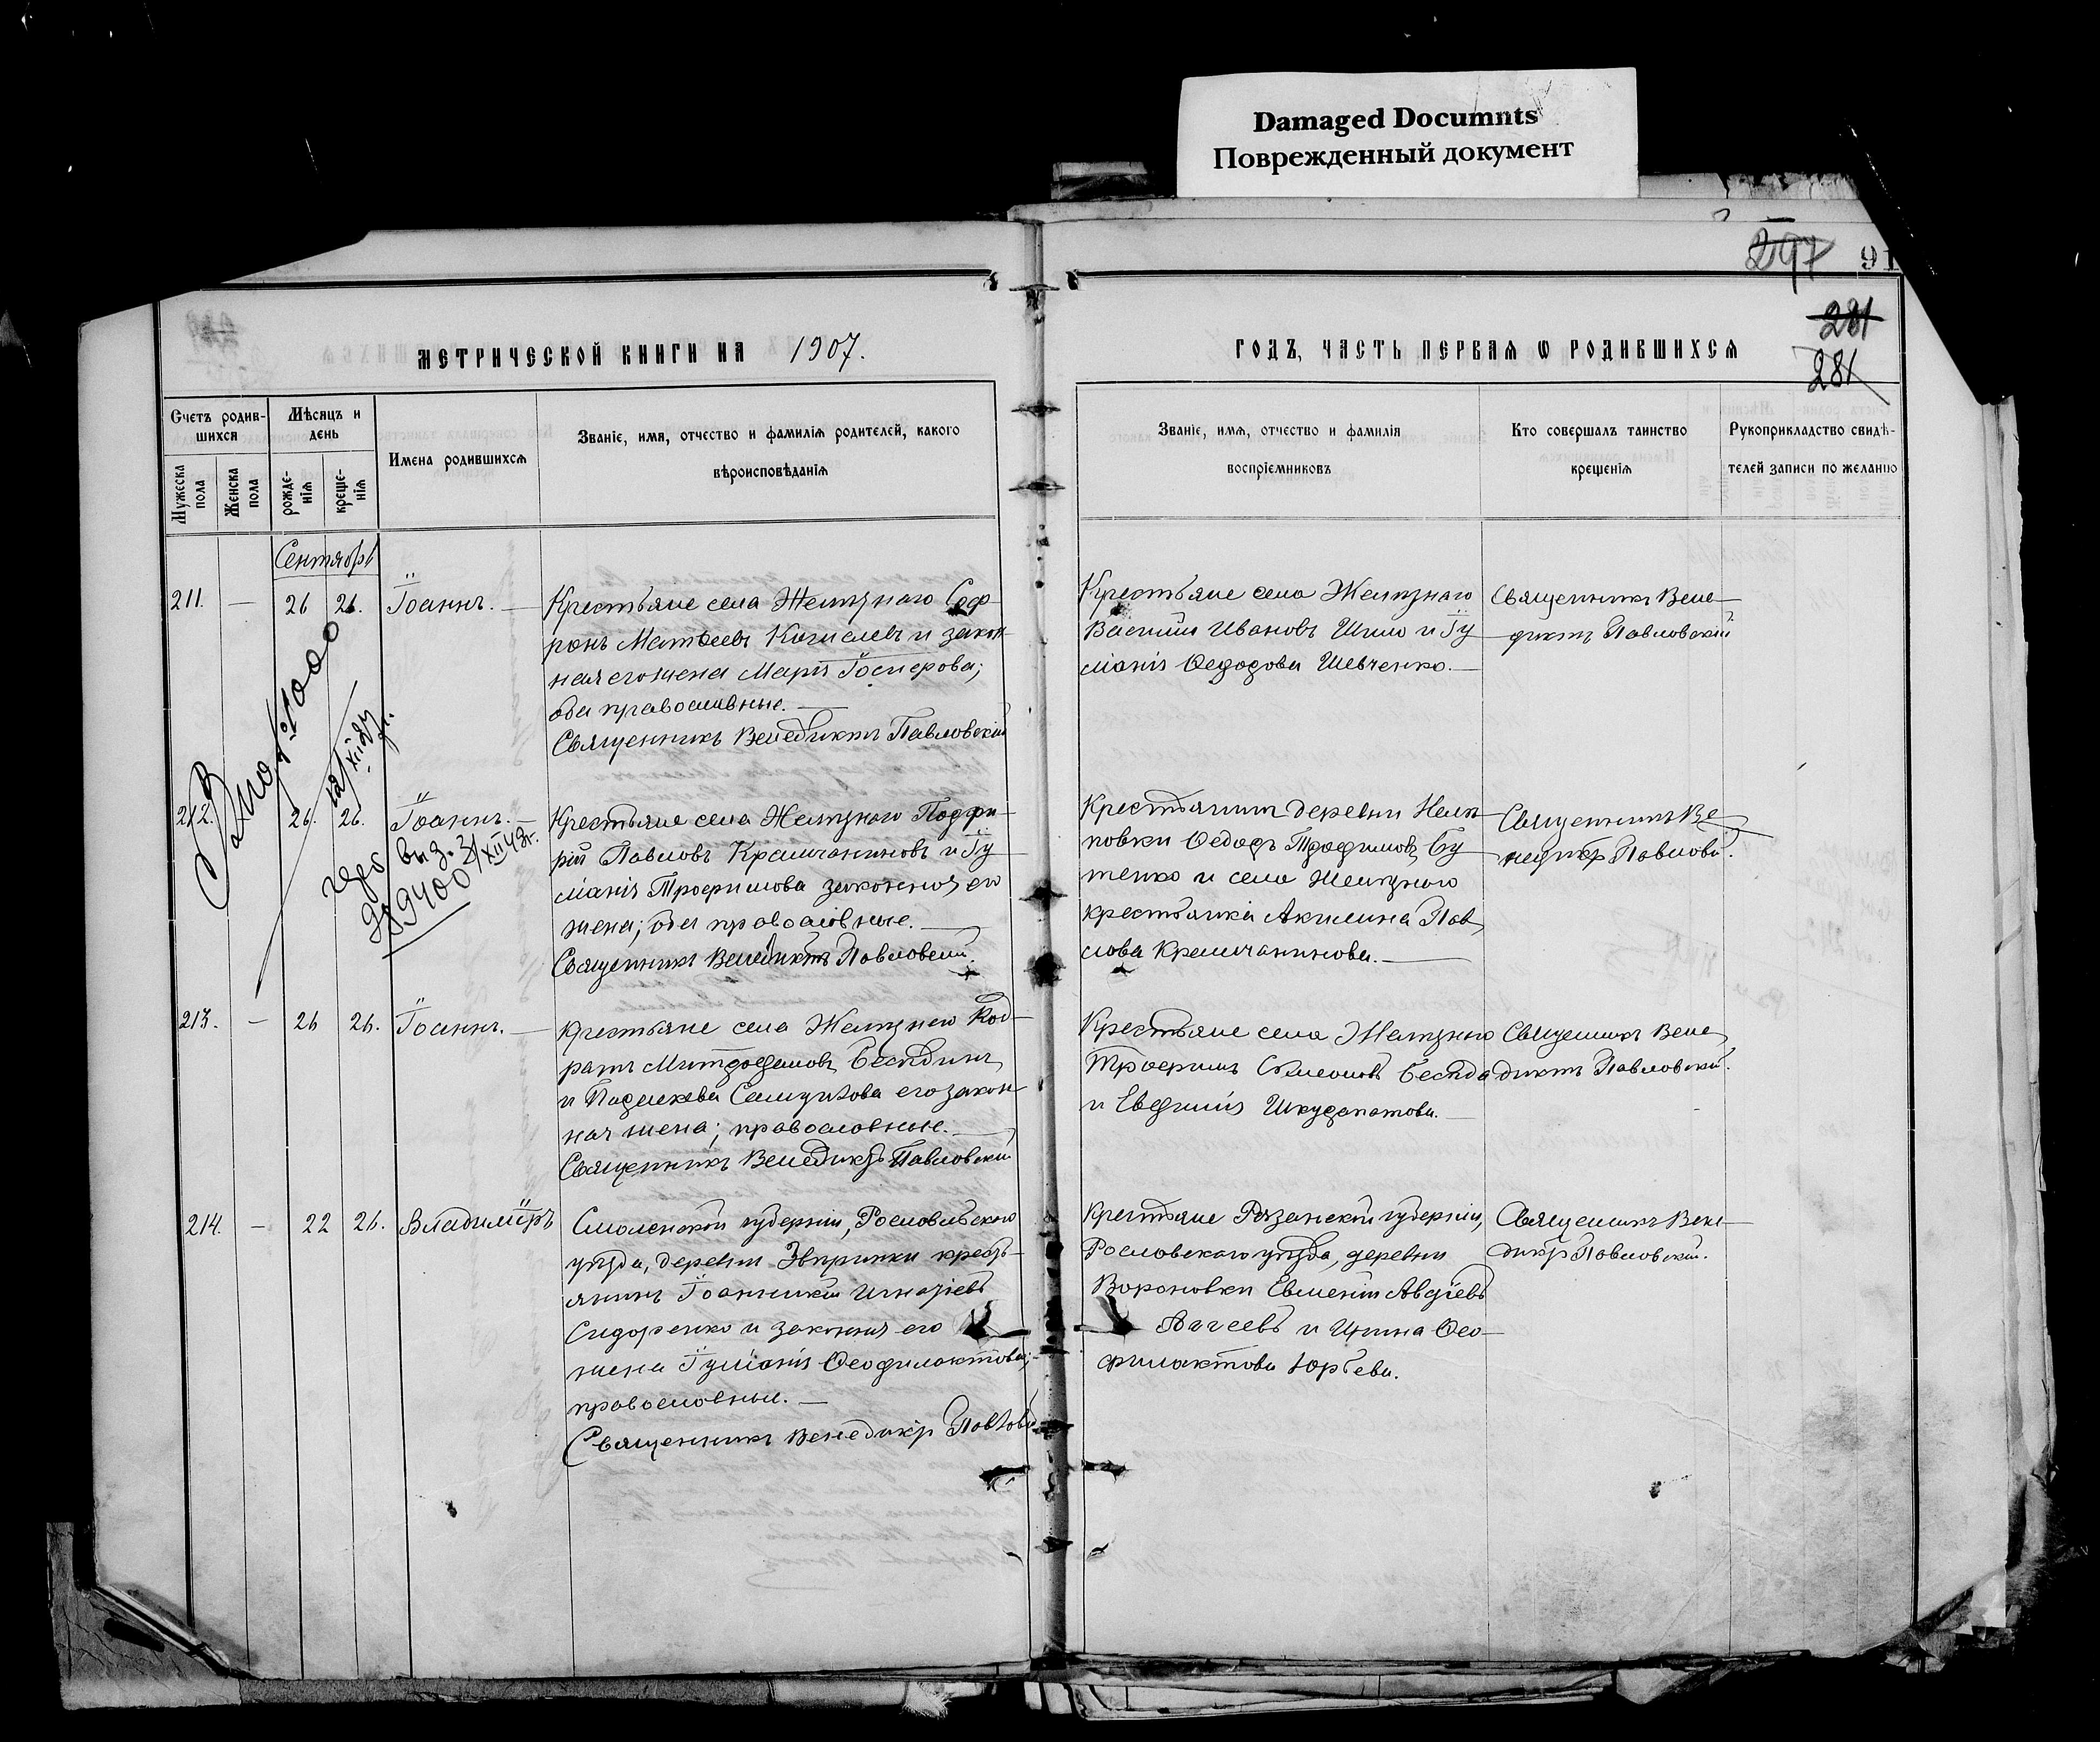 Damaged Documnts
Поврежденный документ
297
91
281
281
МЕТРИЧЕСКОЙ КНИГИ НА 1907.
ГОДЪ, ЧАСТЬ ПЕРВАЯ Ѡ РОДИВШИХСЯ
Счетъ родив-
шихся
Мужеска пола
Женска пола
Мѣсяцъ и
день
рожде-
нія
креще-
нія
Имена родившихся
Званіе, имя, отчество и фамилія родителей, какого
вѣроисповѣданія
Званіе, имя, отчество и фамилія
воспріемниковъ
Кто совершалъ таинство
крещенія
Рукоприкладство свидѣ-
телей записи по желанію
Сентябрь
211. — 26 26. Іоаннъ. —
Крестьяне села Желѣзнаго Соф-
ронъ Матѳеевъ и закон-
ная его жена Марія;
оба православные. —
Священникъ Венедиктъ Павловскій
Крестьяне села Желѣзнаго
Василій Ивановъ Шило и Іу
ліанія Ѳеодорова Шевченко. —
Священникъ Вене-
диктъ Павловскій
212. 26. 26. Іоаннъ. —
выд. 31/XII 42г.
9400
Крестьяне села Желѣзнаго Порфи-
рій Павловъ Крамчаниновъ и Іу
ліанія Трофимова законная его
жена; оба православные. —
Священникъ Венедиктъ Павловскій.
Крестьянинъ деревни
повки Ѳедоръ Трофимовъ Бу
тенко и села Желѣзнаго
крестьянка Акилина Пав
лова Крамчанинова. —
Священникъ Ве-
недиктъ Павловскій.
213. — 26 26. Іоаннъ. —
Крестьяне села Желѣзнаго Код-
ратъ Митрофановъ Бесѣдинъ
и Параскева его закон-
ная жена; православные. —
Священникъ Венедиктъ Павловскій
Крестьяне села Желѣзнаго
Трофимъ Симеоновъ Бесѣда
и Евфимія Шкурапатова. —
Священникъ Вене
диктъ Павловскій.
214. — 22 26. Владиміръ
Смоленской губерніи, Рославльскаго
уѣзда, деревни кресть-
янинъ Іоанникій Игнатіевъ
Сидоренко и законная его
жена Іуліанія Ѳеофилактова;
православные. —
Священникъ Венедиктъ Павловскій
Крестьяне Рязанской губерніи,
уѣзда, деревни
Вороновки Евменій Авдіевъ
Агѣевъ и Ирина Ѳео-
филактова Юрьева.
Священникъ Вене-
диктъ Павловскій.